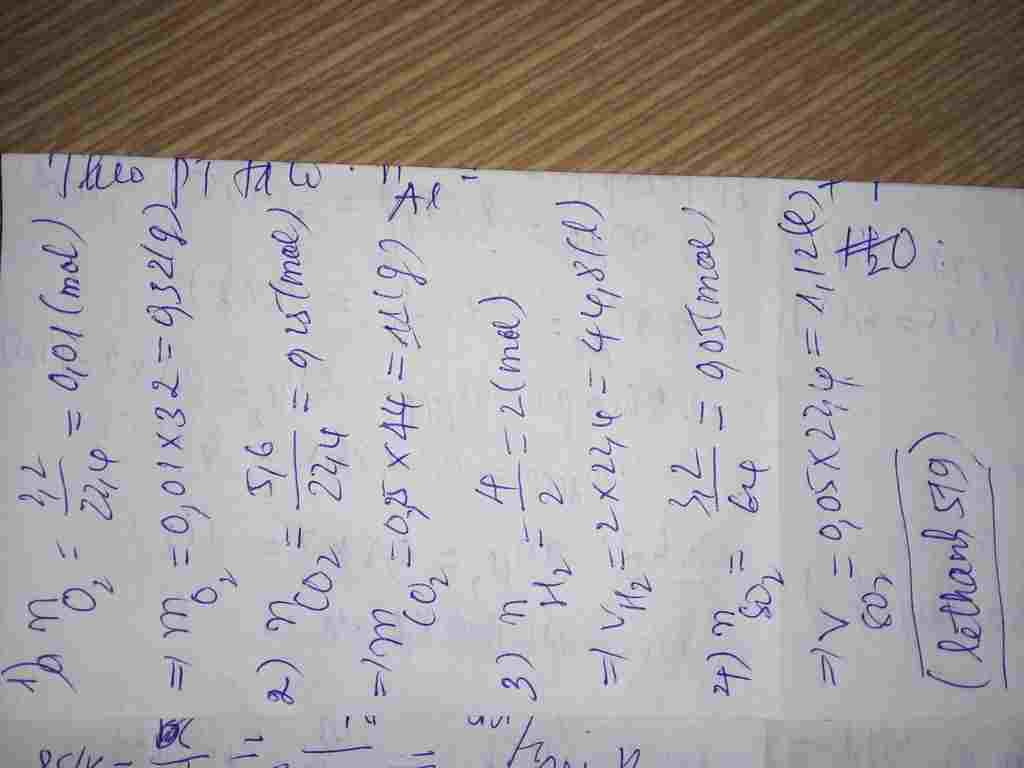 1) n O2 = 3,2/22,4 = 0,01 (mol)
=> m O2 = 0,01 x 32 = 0,32 (g)
2) n CO2 = 5,6/22,4 = 0,25 (mol)
=> m CO2 = 0,25 x 44 = 11 (g)
3) n H2 = 4/2 = 2 (mol)
=> V H2 = 2 x 22,4 = 44,8 (l)
4) n SO2 = 3,2/64 = 0,05 (mol)
=> V SO2 = 0,05 x 22,4 = 1,12 (l)
(lethanh519)
Theo PT ta có : n Al =